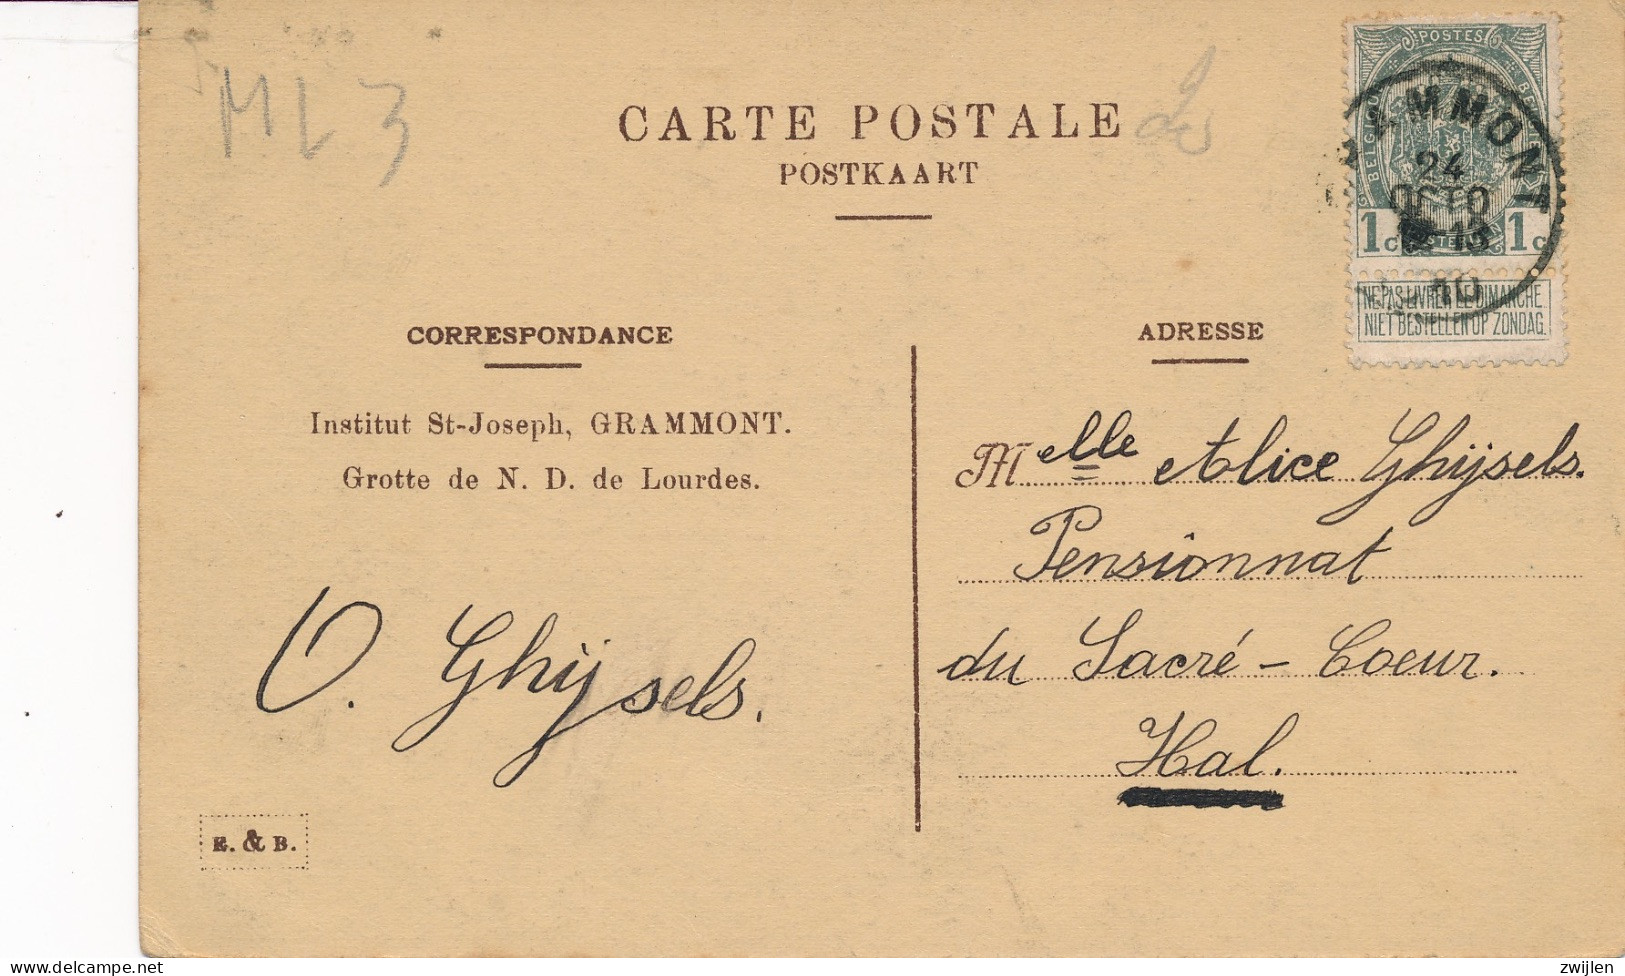 ML3
CARTE POSTALE
POSTKAART
POSTES
1c 1c
MMONT
24
OCTO
10
NE PAS LIVRER LE DIMANCHE
NIET BESTELLEN OP ZONDAG.
CORRESPONDANCE
Institut St-Joseph, GRAMMONT.
Grotte de N. D. de Lourdes.
O. Ghijsels.
E. & B.
ADRESSE
Melle Alice Ghijsels.
Pensionnat
du Sacré-Coeur.
Hal.
zwijlen